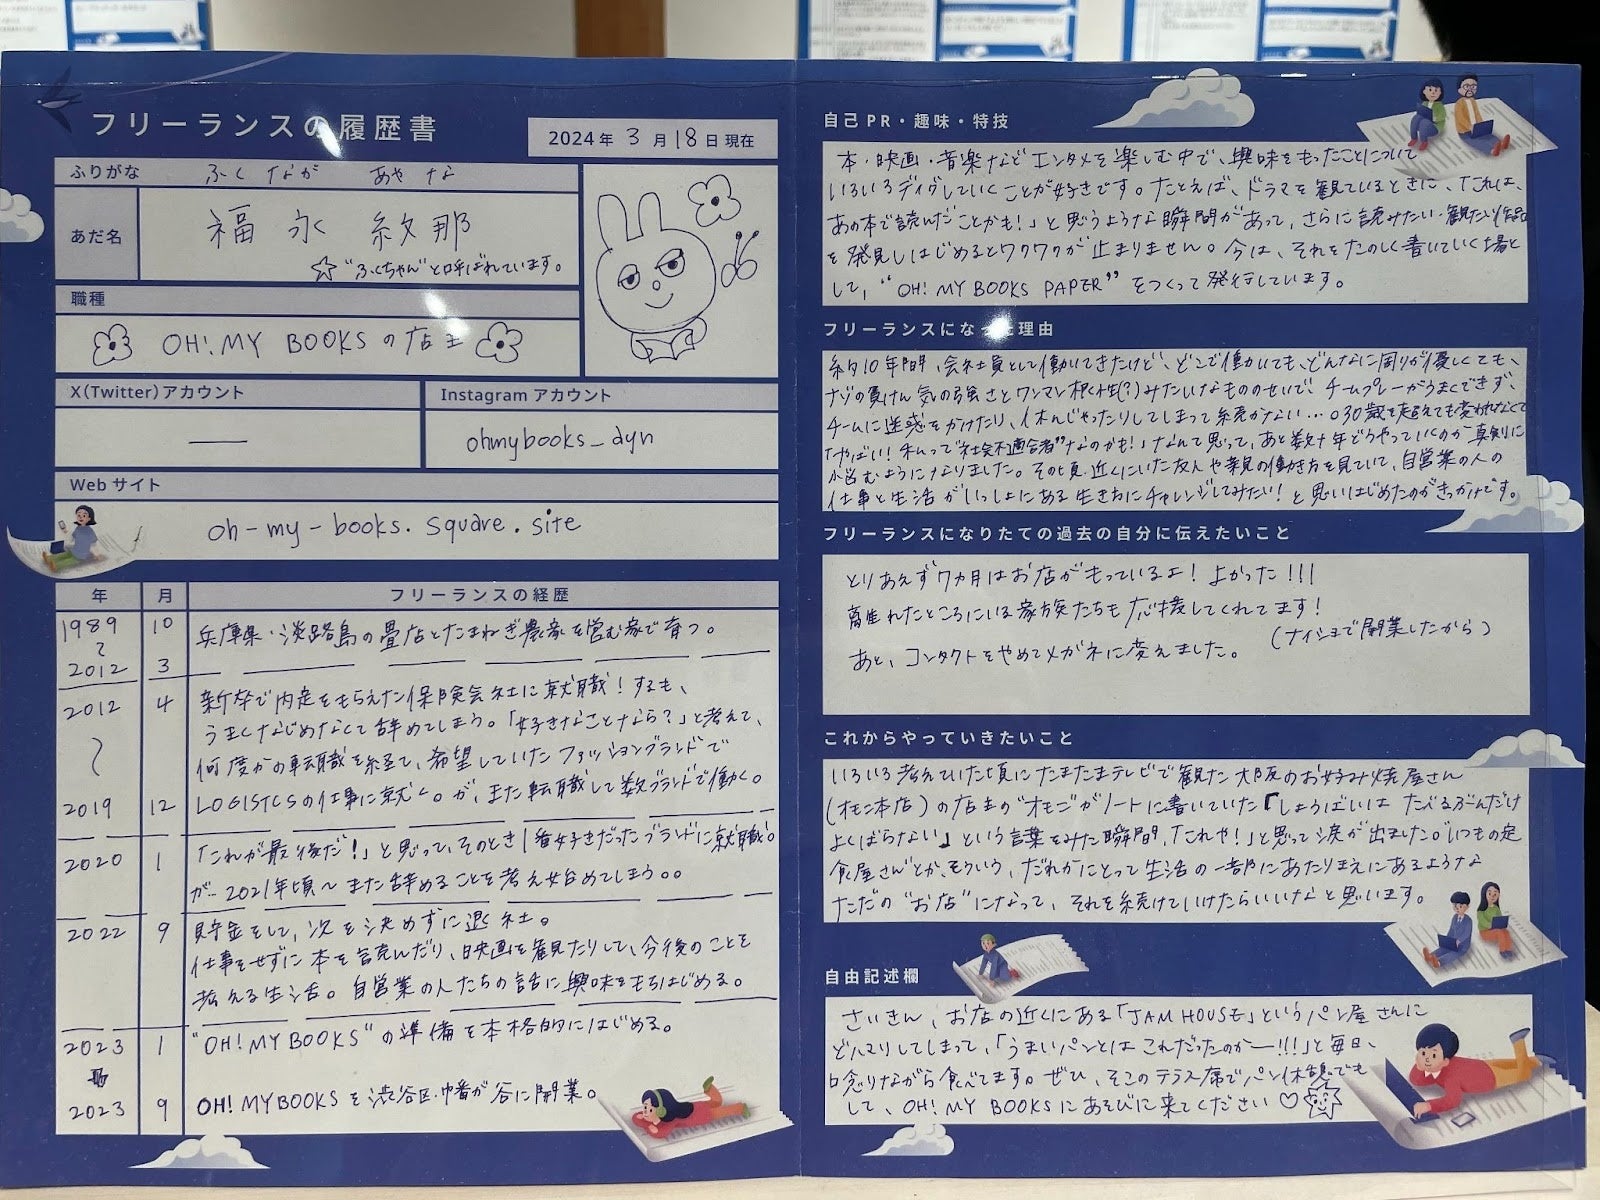 フリーランスの履歴書
2024年 3月18日 現在
ふりがな ふく なが あや な
あだ名 福永 紋那
☆"ふくちゃん"と呼ばれています。
職種
OH! MY BOOKS の店主
X(Twitter)アカウント
—
Instagram アカウント
ohmybooks_dyn
Web サイト
oh-my-books.square.site
年 月 フリーランスの経歴
1989 10 兵庫県・淡路島の畳店とたまねぎ農家を営む家で育つ。
〜
2012 3
2012 4 新卒で内定をもらえた保険会社に就職!するも、
うまくなじめなくて辞めてしまう。「好きなことなら?」と考えて、
〜 何度かの転職を経て、希望していたファッションブランドで
2019 12 LOGISTCSの仕事に就く。が、また転職して数ブランドで働く。
2020 1 「これが最後だ!」と思って、そのとき1番好きだったブランドに就職。
が…2021年頃〜また辞めることを考え始めてしまう。。
2022 9 貯金をして、次を決めずに退社。
仕事をせずに本を読んだり、映画を観たりして、今後のことを
考える生活。自営業の人たちの話に興味をもちはじめる。
2023 1 "OH! MY BOOKS"の準備を本格的にはじめる。
2023 9 OH! MY BOOKSを渋谷区・幡が谷に開業。
自己PR・趣味・特技
本・映画・音楽などエンタメを楽しむ中で、興味をもったことについて
いろいろディグしていくことが好きです。たとえば、ドラマを観ているときに、「これは、
あの本で読んだことかも!」と思うような瞬間があって、さらに読みたい・観たい作品
を発見しはじめるとワクワクが止まりません。今は、それをたのしく書いていく場と
して、"OH! MY BOOKS PAPER"をつくって発行しています。
フリーランスになった理由
約10年間、会社員として働いてきたけど、どこで働いても、どんなに周りが優しくても、
ナゾの負けん気の強さとワンマン根性(?)みたいなもののせいで、チームプレーがうまくできず、
チームに迷惑をかけたり、休んじゃったりしてしまって続かない…。30歳を超えても変われなくて
「やばい!私って"社会不適合者"なのかも!」なんて思って、あと数十年どうやっていくのか真剣に
悩むようになりました。その頃、近くにいた友人や親の働き方を見ていて、自営業の人の
仕事と生活がいっしょにある生き方にチャレンジしてみたい!と思いはじめたのがきっかけです。
フリーランスになりたての過去の自分に伝えたいこと
とりあえず7ヵ月はお店がもっているよ!よかった!!!
離れたところにいる家族たちも応援してくれてます!
(ナイショで開業したから)
あと、コンタクトをやめてメガネに変えました。
これからやっていきたいこと
いろいろ考えていた頃にたまたまテレビで観た大阪のお好み焼屋さん
(オモニ本店)の店主の"オモニ"がノートに書いていた『しょうばいは たべるぶんだけ
よくばらない』という言葉をみた瞬間、「これや!」と思って涙が出ました。"いつもの定
食屋さん"とか、そういう、だれかにとって生活の一部にあたりまえにあるような
ただの"お店"になって、それを続けていけたらいいなと思います。
自由記述欄
さいきん、お店の近くにある「JAM HOUSE」というパン屋さんに
どハマりしてしまって、「うまいパンとはこれだったのかー!!!」と毎日、
唸りながら食べてます。ぜひ、そこのテラス席でパン休憩でも
して、OH! MY BOOKSにあそびに来てください♡